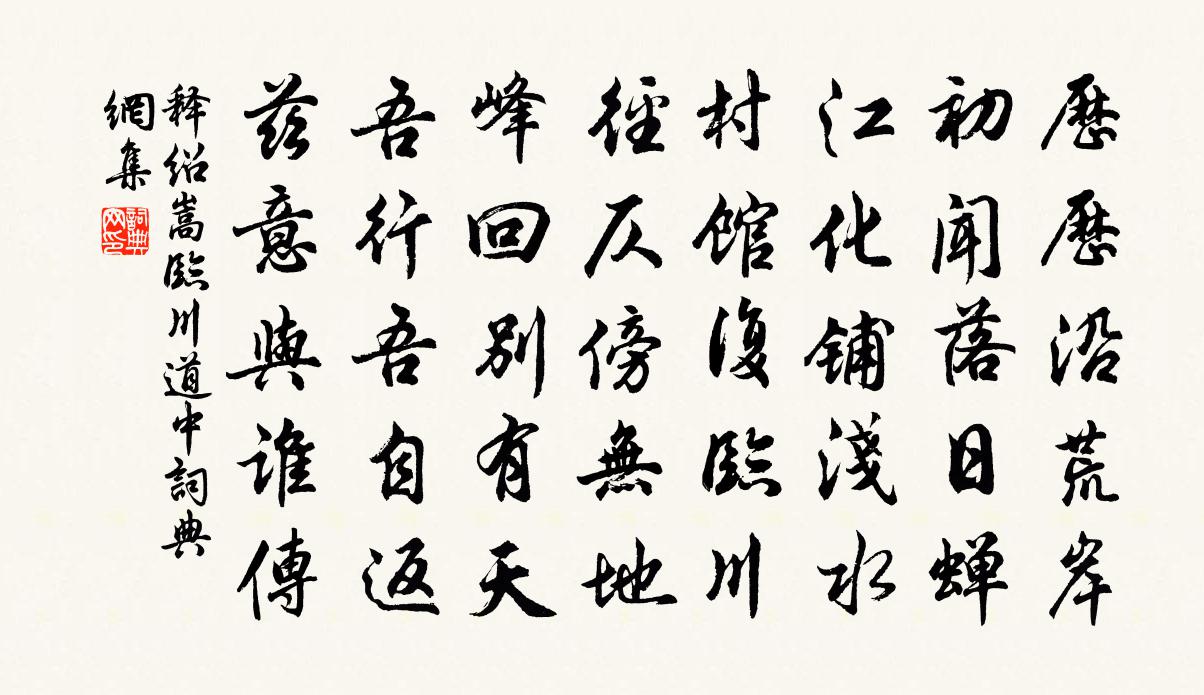 歷歷沿荒岸
初聞落日蝉
江化鋪淺水
村館復臨川
徑仄傍無地
峰回別有天
吾行吾自返
茲意與誰傳
释紹嵩臨川道中詞典
網集
詞典
网印